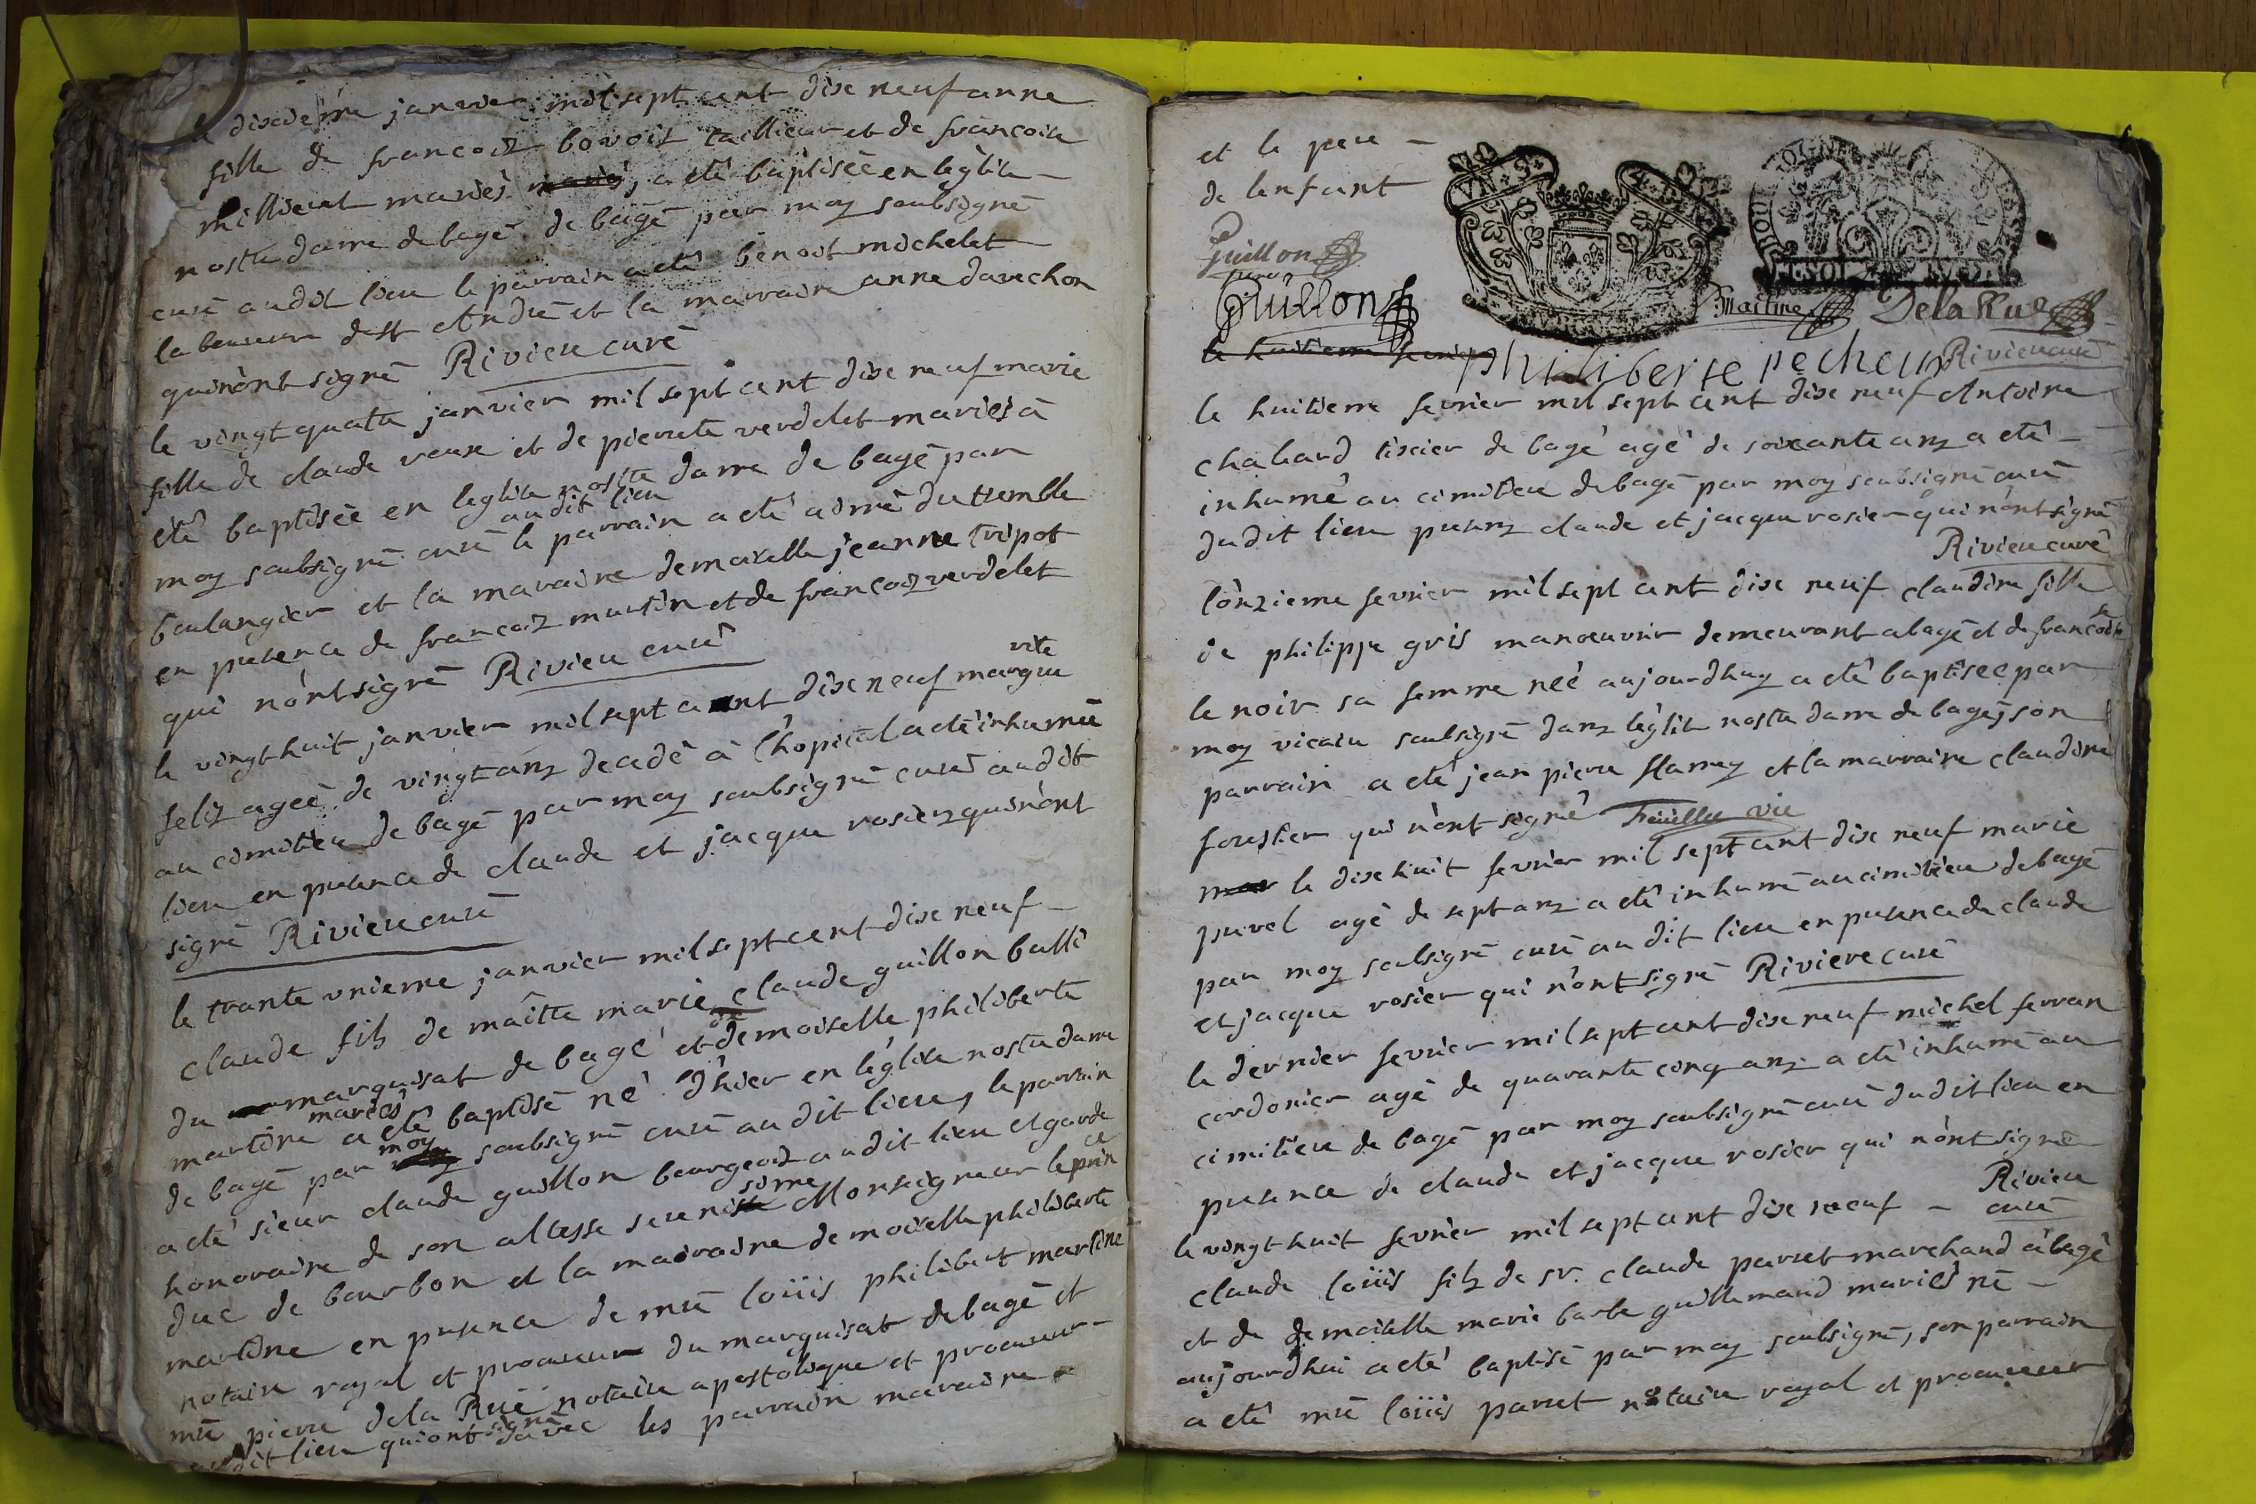 le dixieme janvier mil sept cent dixe neuf anne
fille de francois bovoit taillieur et de francoise
millieret mariés a eté baptisée en leglise
nostre dame de bagé de bagé par moy soubsigné
curé audit lieu le parrain a eté benoit michelet
laboureur de st André et la marraine anne davechon
qui nont signé Riviere curé
le vingt quatre janvier mil sept cent dixe neuf marie
fille de claude veuse et de pierrete verdelet mariés a
eté baptisée en leglise nostre dame de bagé par
moy soubsigné curé audit lieu le parrain a eté aimé du tremble
boulangier et la maraine demoiselle jeanne tripot
en presence de francois martin et de francois verdelet
qui n'ont signé Riviere curé
le vingt huit janvier mil sept cent dixe neuf marguerite
felix ageé de vingt ans decedé à l'hopital a eté inhumée
au cimitiere de bagé par moy soubsigné curé audit
lieu en presence de claude et jacque rosier qui n'ont
signé Riviere curé
le trante unieme janvier mil sept cent dixe neuf
claude fils de maître marie claude guillon balli
du marquisat de bagé et de demoiselle philiberte
martine mariés a eté baptisé né d'hier en l'église nostre dame
de bagé par moy soubsigné curé audit lieu, le parrain
a eté sieur claude guillon bourgeois audit lieu et garde
honoraire de son altesse serenissime Monseigneur le prince
duc de bourbon et la maraine demoiselle philiberte
martine en presence de mre loüis philibert martine
notaire royal et procureur du marquisat de bagé et
mre pierre dela Rüe notaire apostolique et procureur
audit lieu qui ont signé avec les parrain maraine
et le pere
de lenfant
Guillon
Guillon
Martine DelaRue
philiberte pecheux Riviere curé
le huitieme fevrier mil sept cent dixe neuf Antoine
chabard tixier de bagé agé de soixante ans a eté
inhumé au cimitiere de bagé par moy soubsigné curé
dudit lieu presens claude et jacque rosier qui n'ont signé
Riviere curé
l'onzieme fevrier mil sept cent dixe neuf claudine fille
de philippe gris manoeuvrier demeurant a bagé et de francoise
le noir sa femme neé aujourdhuy a eté baptiseé par
moy vicaire soubsigné dans l'église nostre dame de bagé, son
parrain a eté jean pierre flamy et la marraine claudine
forestier qui n'ont signé Feuillee vic
le dixe huit fevrier mil sept cent dixe neuf marie
puvel agé de sept ans a eté inhumé au cimitiere de bagé
par moy soubsigné curé au dit lieu en presence de claude
et jacque rosier qui n'ont signé Riviere curé
le dernier fevrier mil sept cent dixe neuf michel ferran
cordonier agé de quarante cinq ans a eté inhumé au
cimitiere de bagé par moy soubsigné curé dudit lieu en
presence de claude et jacque rosier qui n'ont signé
Riviere curé
le vingt huit fevrier mil sept cent dixe neuf
claude loüis fils de sr. claude parret marchand à bagé
et de demoiselle marie barbe guillemaud mariés né
aujourdhui a eté baptisé par moy soubsigné, son parrain
a eté mre loüis parret notaire royal et procureur